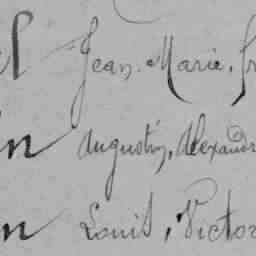 l Jean Marie, fr
in Augustin, Alexandr
n Louis, Victor